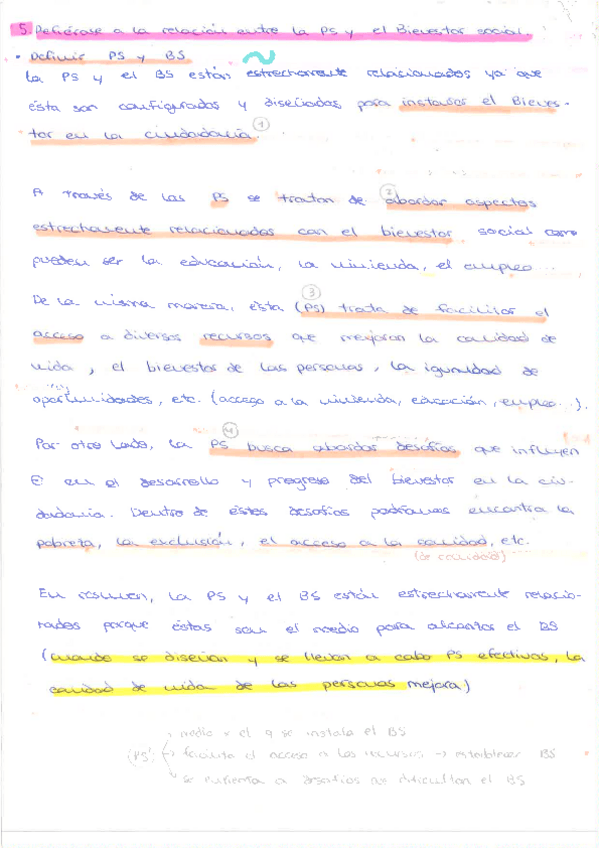 5. Refiérase a la relación entre la PS y el Bienestar social.
• Definir PS y BS
La PS y el BS están estrechamente relacionados ya que
ésta son configurados y diseñados para instaurar el Bienes-
tar en la ciudadanía. ①
A través de las PS se tratan de ② abordar aspectos
estrechamente relacionados con el bienestar social como
pueden ser la educación, la vivienda, el empleo...
De la misma manera, ésta ③ (PS) trata de facilitar el
acceso a diversos recursos que mejoran la calidad de
vida, el bienestar de las personas, la igualdad de
oportunidades, etc. (acceso a la vivienda, educación, empleo...).
Por otro lado, la PS ④ busca abordar desafíos que influyen
en el desarrollo y progreso del bienestar en la ciu-
dadanía. Dentro de estos desafíos podríamos encontrar la
pobreza, la exclusión, el acceso a la sanidad, etc.
(de calidad)
En resumen, la PS y el BS están estrechamente relacio-
nados porque éstas son el medio para alcanzar el BS
(cuando se diseñan y se llevan a cabo PS efectivas, la
calidad de vida de las personas mejora)
medio x el q se instala el BS
(PS) → facilita el acceso a los recursos → establecer BS
se enfrenta a desafíos que dificultan el BS